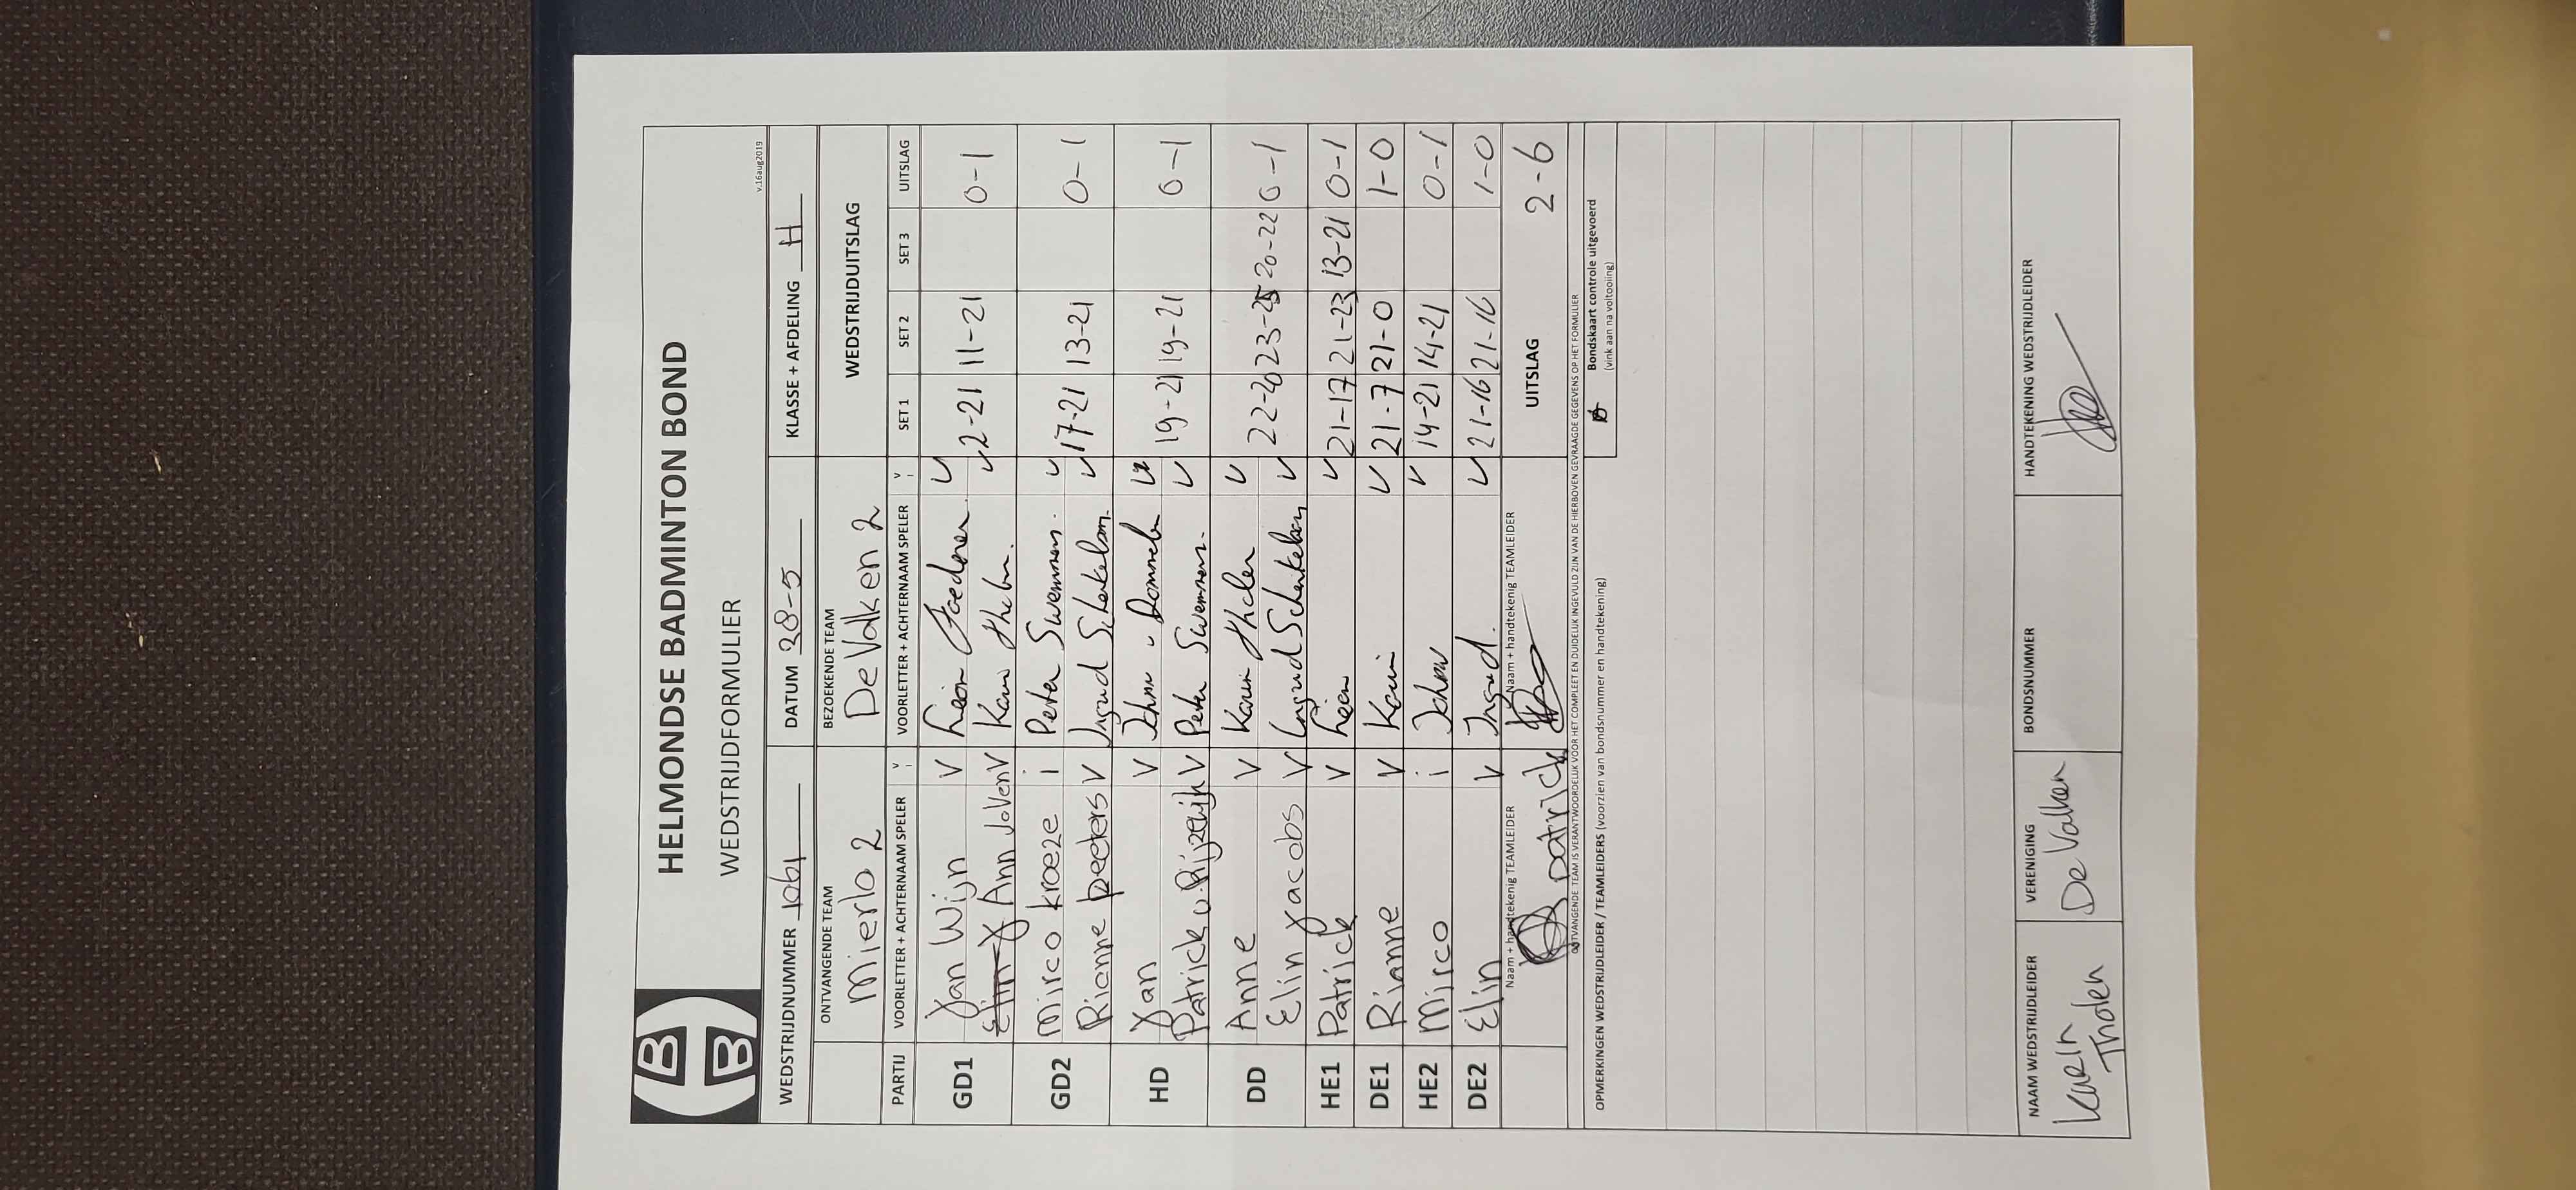 HELMONDSE BADMINTON BOND
WEDSTRIJDFORMULIER
v.16aug2019
WEDSTRIJDNUMMER 1061 DATUM 28-5 KLASSE + AFDELING H
ONTVANGENDE TEAM BEZOEKENDE TEAM WEDSTRIJDUITSLAG
Mierlo 2 De Valken 2
PARTIJ VOORLETTER + ACHTERNAAM SPELER V I VOORLETTER + ACHTERNAAM SPELER V I SET 1 SET 2 SET 3 UITSLAG
GD1 Jan Wijn V Leon V 2-21 11-21 0-1
Ann V Karin V
GD2 Mirco kroeze i Peter Swemmers V 17-21 13-21 0-1
Rianne peeters V Ingrid Schenkelaars V
HD Jan V John V 19-21 19-21 0-1
Patrick v. Rijzewijk V Peter Swemmers V
DD Anne V Karin Tholen V 22-20 23-25 20-22 0-1
Elin Jacobs V Ingrid Schenkelaars V
HE1 Patrick V Leon V 21-17 21-23 13-21 0-1
DE1 Rianne V Karin V 21-7 21-0 1-0
HE2 Mirco i John V 14-21 14-21 0-1
DE2 Elin V Ingrid V 21-16 21-16 1-0
Naam + handtekenig TEAMLEIDER Naam + handtekenig TEAMLEIDER UITSLAG 2-6
patrick
ONTVANGENDE TEAM IS VERANTWOORDELIJK VOOR HET COMPLEET EN DUIDELIJK INGEVULD ZIJN VAN DE HIERBOVEN GEVRAAGDE GEGEVENS OP HET FORMULIER
OPMERKINGEN WEDSTRIJDLEIDER / TEAMLEIDERS (voorzien van bondsnummer en handtekening)
Bondskaart controle uitgevoerd
(vink aan na voltooiing)
NAAM WEDSTRIJDLEIDER VERENIGING BONDSNUMMER HANDTEKENING WEDSTRIJDLEIDER
Karin De Valken
Tholen